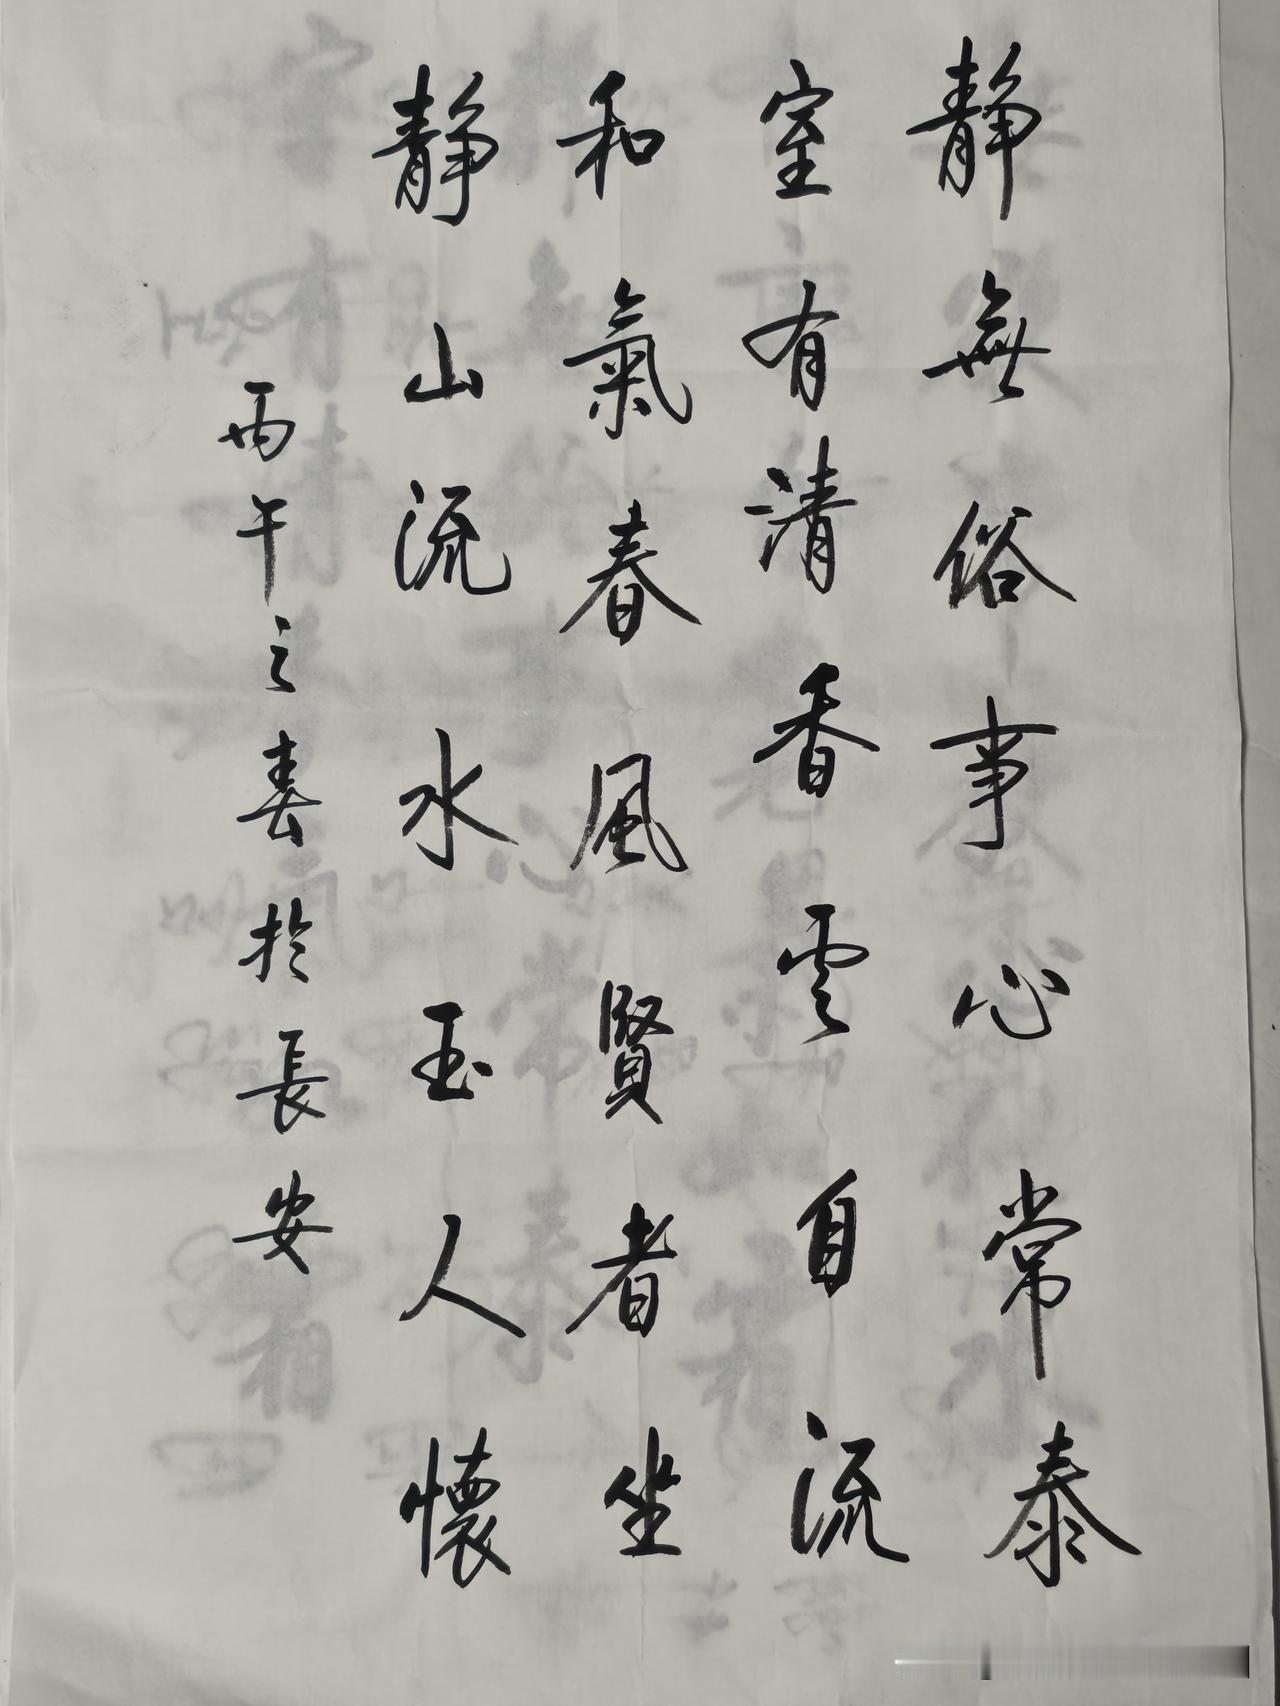 静無俗事心常泰
室有清香雲自流
和氣春風賢者坐
静山流水玉人懷
丙午之春於長安